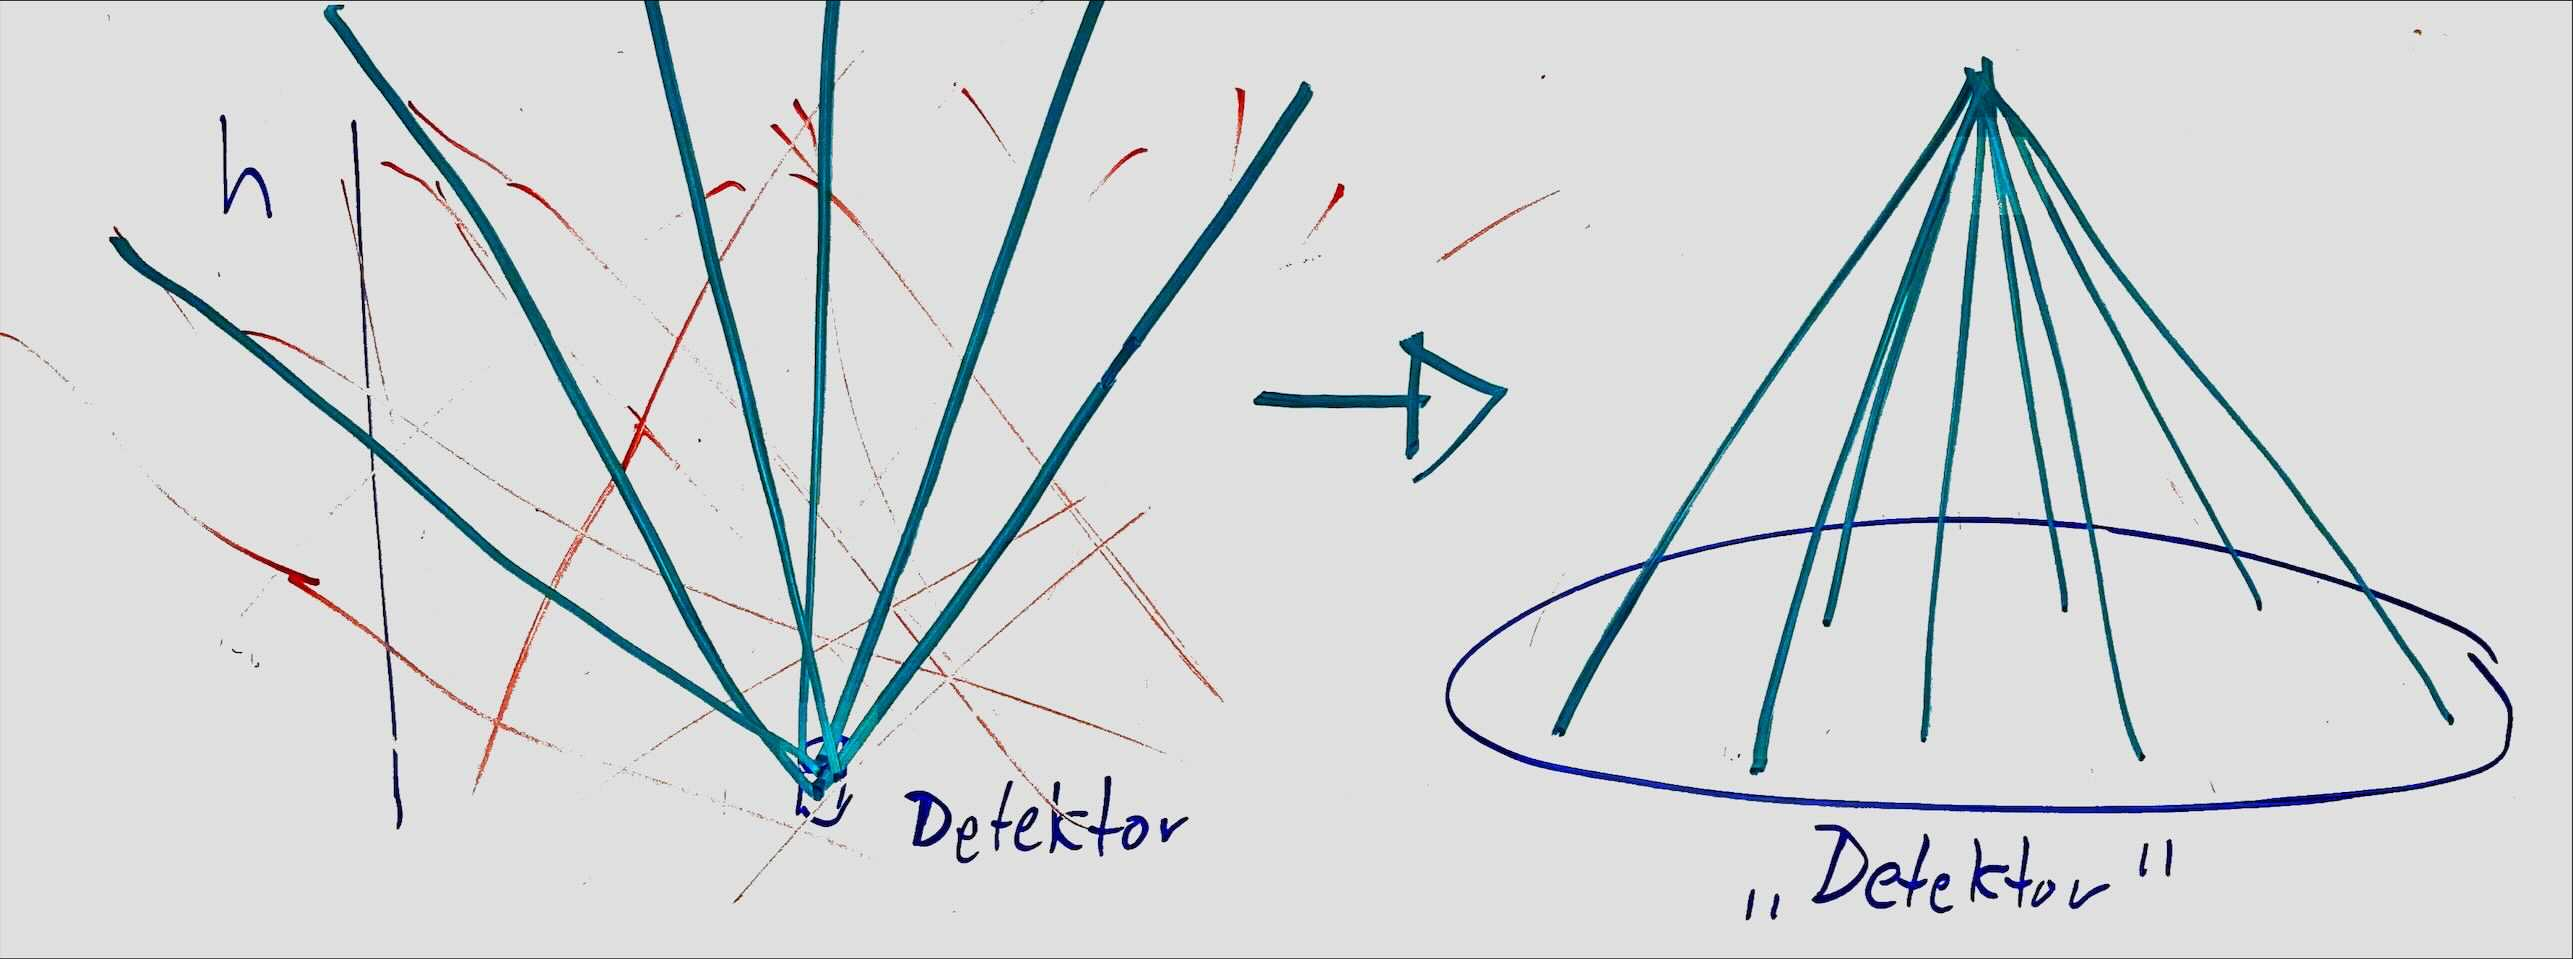 h
Detektor
„Detektor"